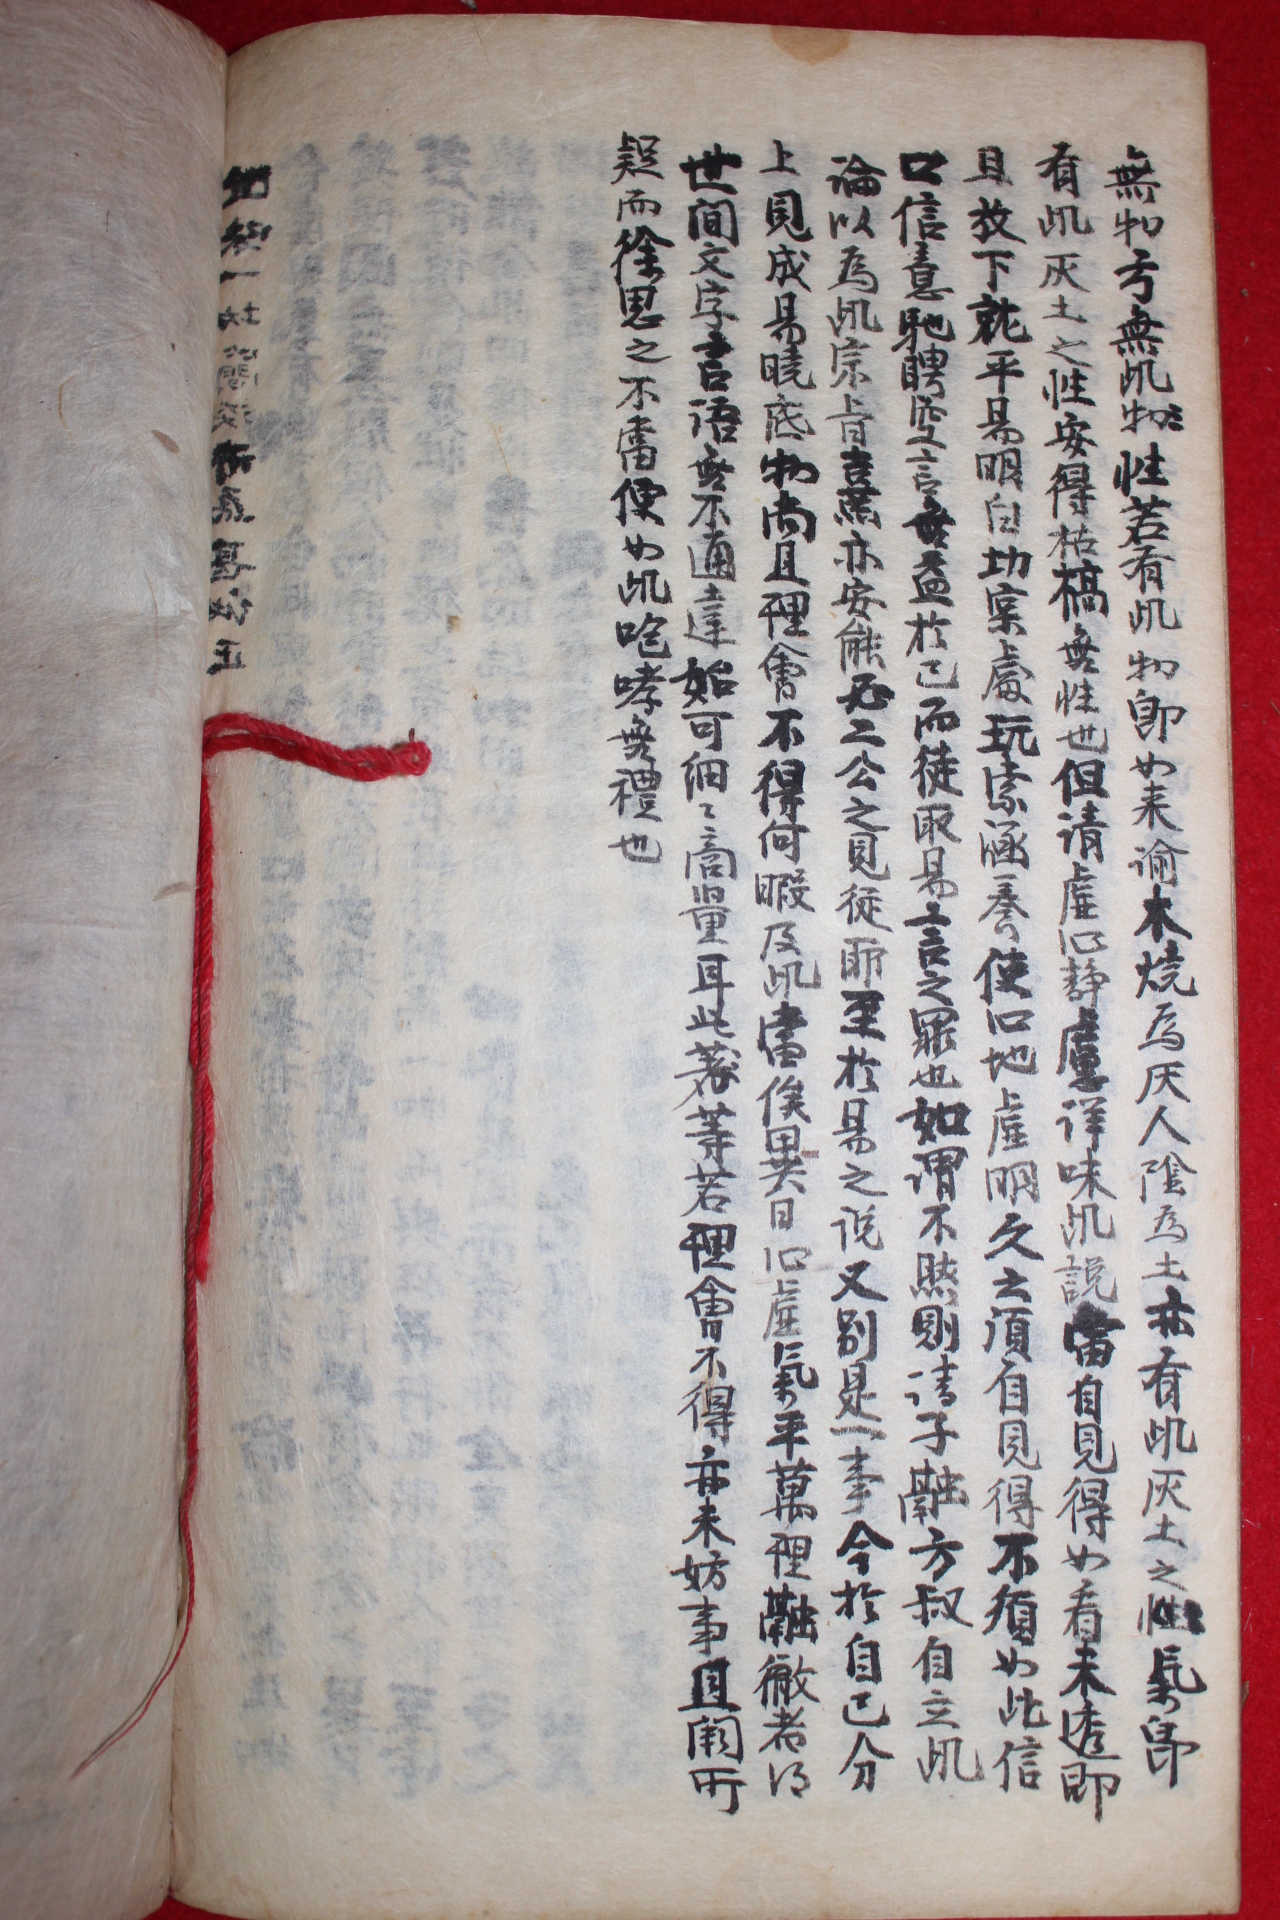 無物方無此物性若有此物即如来谕木燒為灰人陰為土亦有此灰土之性氣即
有此灰土之性安得枯槁無性也但请虛心静慮详味此説當自見得如看未透即
且放下就平易明白功案處玩索涵養使心地虛明久之须自見得不須如此信
口信意馳騁空言無益於己而徒取易言之罪也如謂不然則请子融方叔自立此
論以為此宗旨熹亦安能必二公之見從耶至於易之说又别是一事今於自己分
上見成易曉底物尚且理會不得何暇及此當俟異日心虛氣平萬理融徹看得
世間文字言语無不通達始可细〻商量耳此等若理會不得亦未妨事且闕所
疑而徐思之不當便如此咆哮無禮也